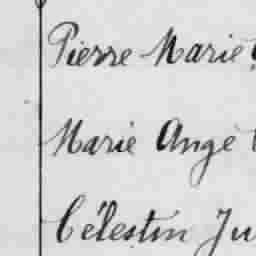 Pierre Marie
Marie Ange
Célestin Ju